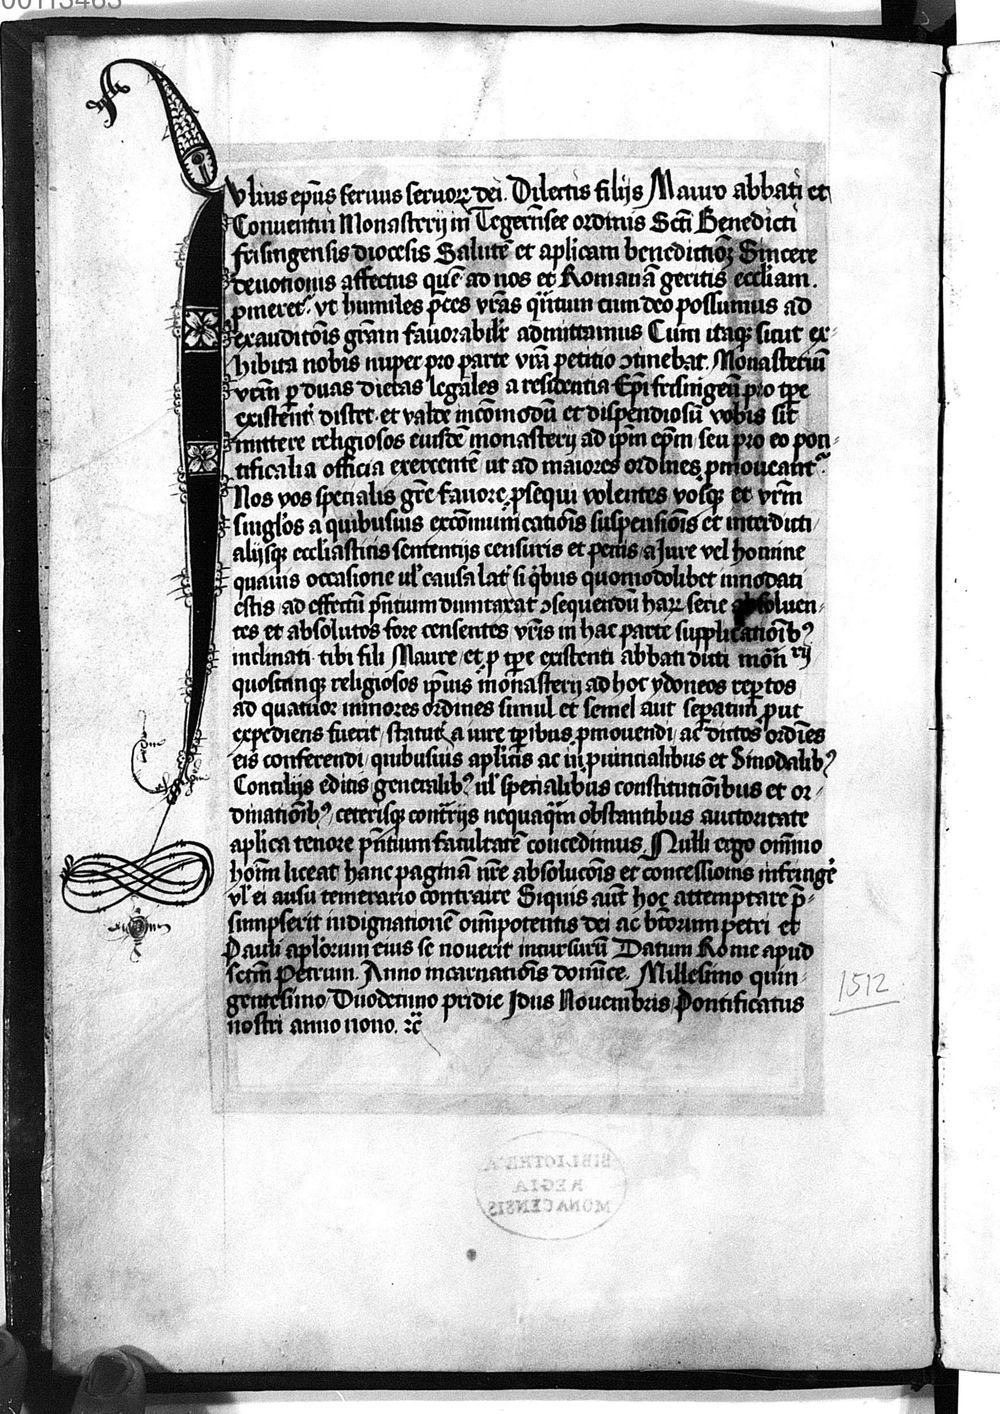 00113463
Iulius ep̄us seruus seruoꝝ dei. Dilectis filijs Mauro abbati et
Conuentui Monasterij in Tegern̄see ordinis Sc̄ti Benedicti
frisingensis diocesis Salutē et aplicam benedictionꝫ Sincere
deuotionis affectus quē ad nos et Romanā geritis eccliam.
ꝓmeret᷑ vt humiles p̄ces vr̄as qn̄tum cum deo possumus ad
exauditōis gr̄am fauorabilr̄ admittamus Cum itaqꝫ sicut ex-
hibita nobis nuper pro parte vr̄a petitio ↄtinebat. Monasteriū
vr̄m ꝑ duas dietas legales a residentia Ep̄i frisingen̄ pro tp̄e
existent᷑ distet et valde incōmodū et dispendiosū vobis sit
mittere religiosos eiusdē monasterij ad ip̄m ep̄m seu pro eo pon-
tificalia officia exercentē ut ad maiores ordines ꝓmoueant᷑
Nos vos specialis gr̄e fauore ꝓsequi volentes vosqꝫ et vr̄m
singl̓os a quibusuis excōmunicatiōis suspensiōis et interdicti
alijsqꝫ eccliasticis sententijs censuris et penis a Jure vel homine
quauis occasione ul̓ causa lat᷑ si qͥbus quomodolibet innodati
estis ad effectū pn̄tium dumtaxat ↄsequendū haꝝ serie absoluen-
tes et absolutos fore censentes vr̄is in hac parte supplicatiōibꝰ
inclinati tibi fili Maure et ꝓ tp̄e existenti abbati dicti mōn rij
quoscunqꝫ religiosos ip̄ius monasterij ad hoc ydoneos rep̄tos
ad quatuor minores ordines simul et semel aut sep̄atim ꝓut
expediens fuerit statut᷑ a iure tp̄ibus ꝓmouendi ac dictos ordīes
eis conferendi quibusuis aplicis ac in ꝓuincialibus et Sinodalibꝰ
Concilijs editis generalibꝰ ul̓ specialibus constitutiōibus et or-
dinatiōibꝰ ceterisqꝫ contr̄ijs nequaqͣm obstantibus auctoritate
aplica tenore pn̄tium facultatē concedimus. Nulli ergo om̄ino
hoīm liceat hanc paginā nr̄e absolucōis et concessionis infring̓e
vl̓ ei ausu temerario contraire Siquis aūt hoc attemptare p̄-
sumpserit indignationē om̄ipotentis dei ac bt̄orum petri et
Pauli aplorum eius se nouerit incursurū Datum Rome apud
sctm̄ Petrum. Anno incarnatiōis domīce. Millesimo quin-
gentesimo Duodecimo pridie Idus Nouembris Pontificatus
nostri anno nono. ꝛc̄
1512
BIBLIOTHECA
REGIA
MONACENSIS